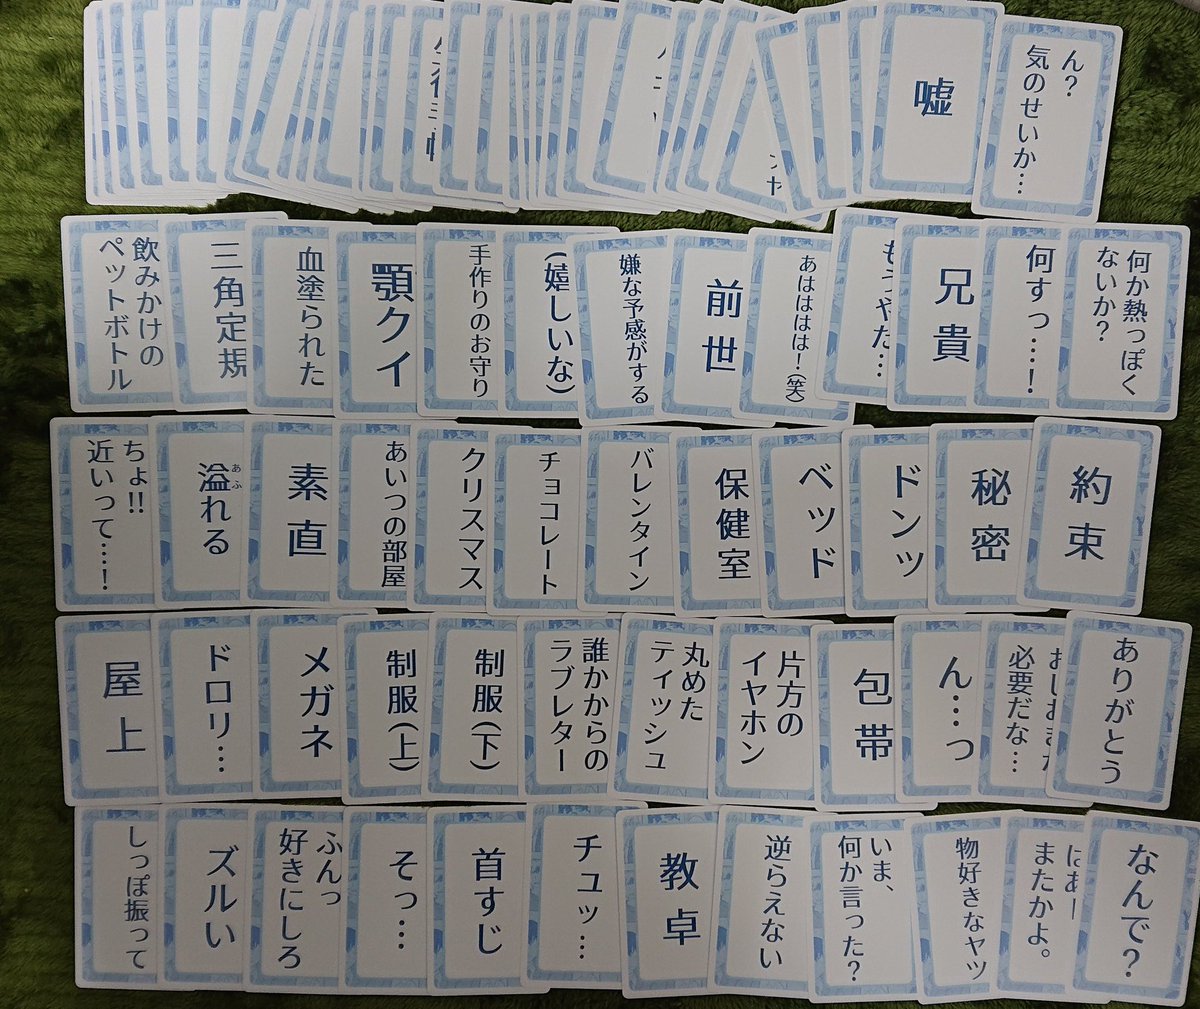 嘘
ん?
気のせいか…
飲みかけの
ペットボトル
三角定規
血塗られた
顎クイ
手作りのお守り
(嬉しいな)
嫌な予感がする
前世
あはははは!(笑)
もうやだ…
兄貴
何すっ…!
何か熱っぽく
ないか?
ちょ!!
近いって…!
溢れる
あふ
素直
あいつの部屋
クリスマス
チョコレート
バレンタイン
保健室
ベッド
ドンッ
秘密
約束
屋上
ドロリ…
メガネ
制服(上)
制服(下)
誰かからの
ラブレター
丸めた
ティッシュ
片方の
イヤホン
包帯
ん…っ
おしおきが
必要だな…
ありがとう
しっぽ振って
ズルい
ふんっ
好きにしろ
そっ…
首すじ
チュッ…
教卓
逆らえない
いま、
何か言った?
物好きなヤツ
はあー
またかよ。
なんで?